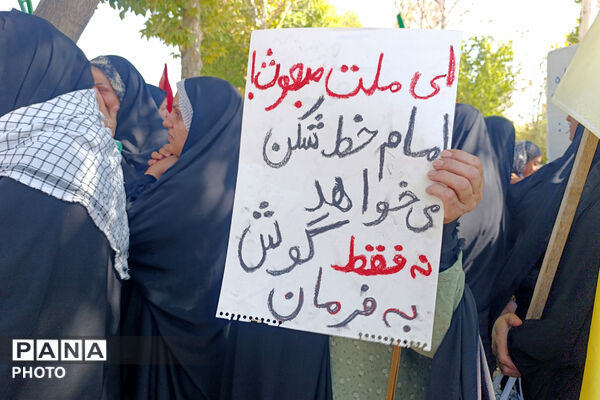 ای ملت مبعوث!
امام خط شکن
می خواهد
نه فقط گوش
به فرمان
PANA
PHOTO